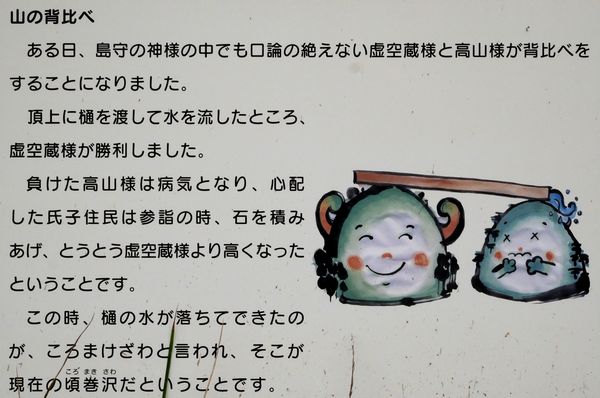 山の背比べ
ある日、島守の神様の中でも口論の絶えない虚空蔵様と高山様が背比べを
することになりました。
頂上に樋を渡して水を流したところ、
虚空蔵様が勝利しました。
負けた高山様は病気となり、心配
した氏子住民は参詣の時、石を積み
あげ、とうとう虚空蔵様より高くなった
ということです。
この時、樋の水が落ちてできたの
が、ころまけざわと言われ、そこが
ころ まき さわ
現在の頃巻沢だということです。